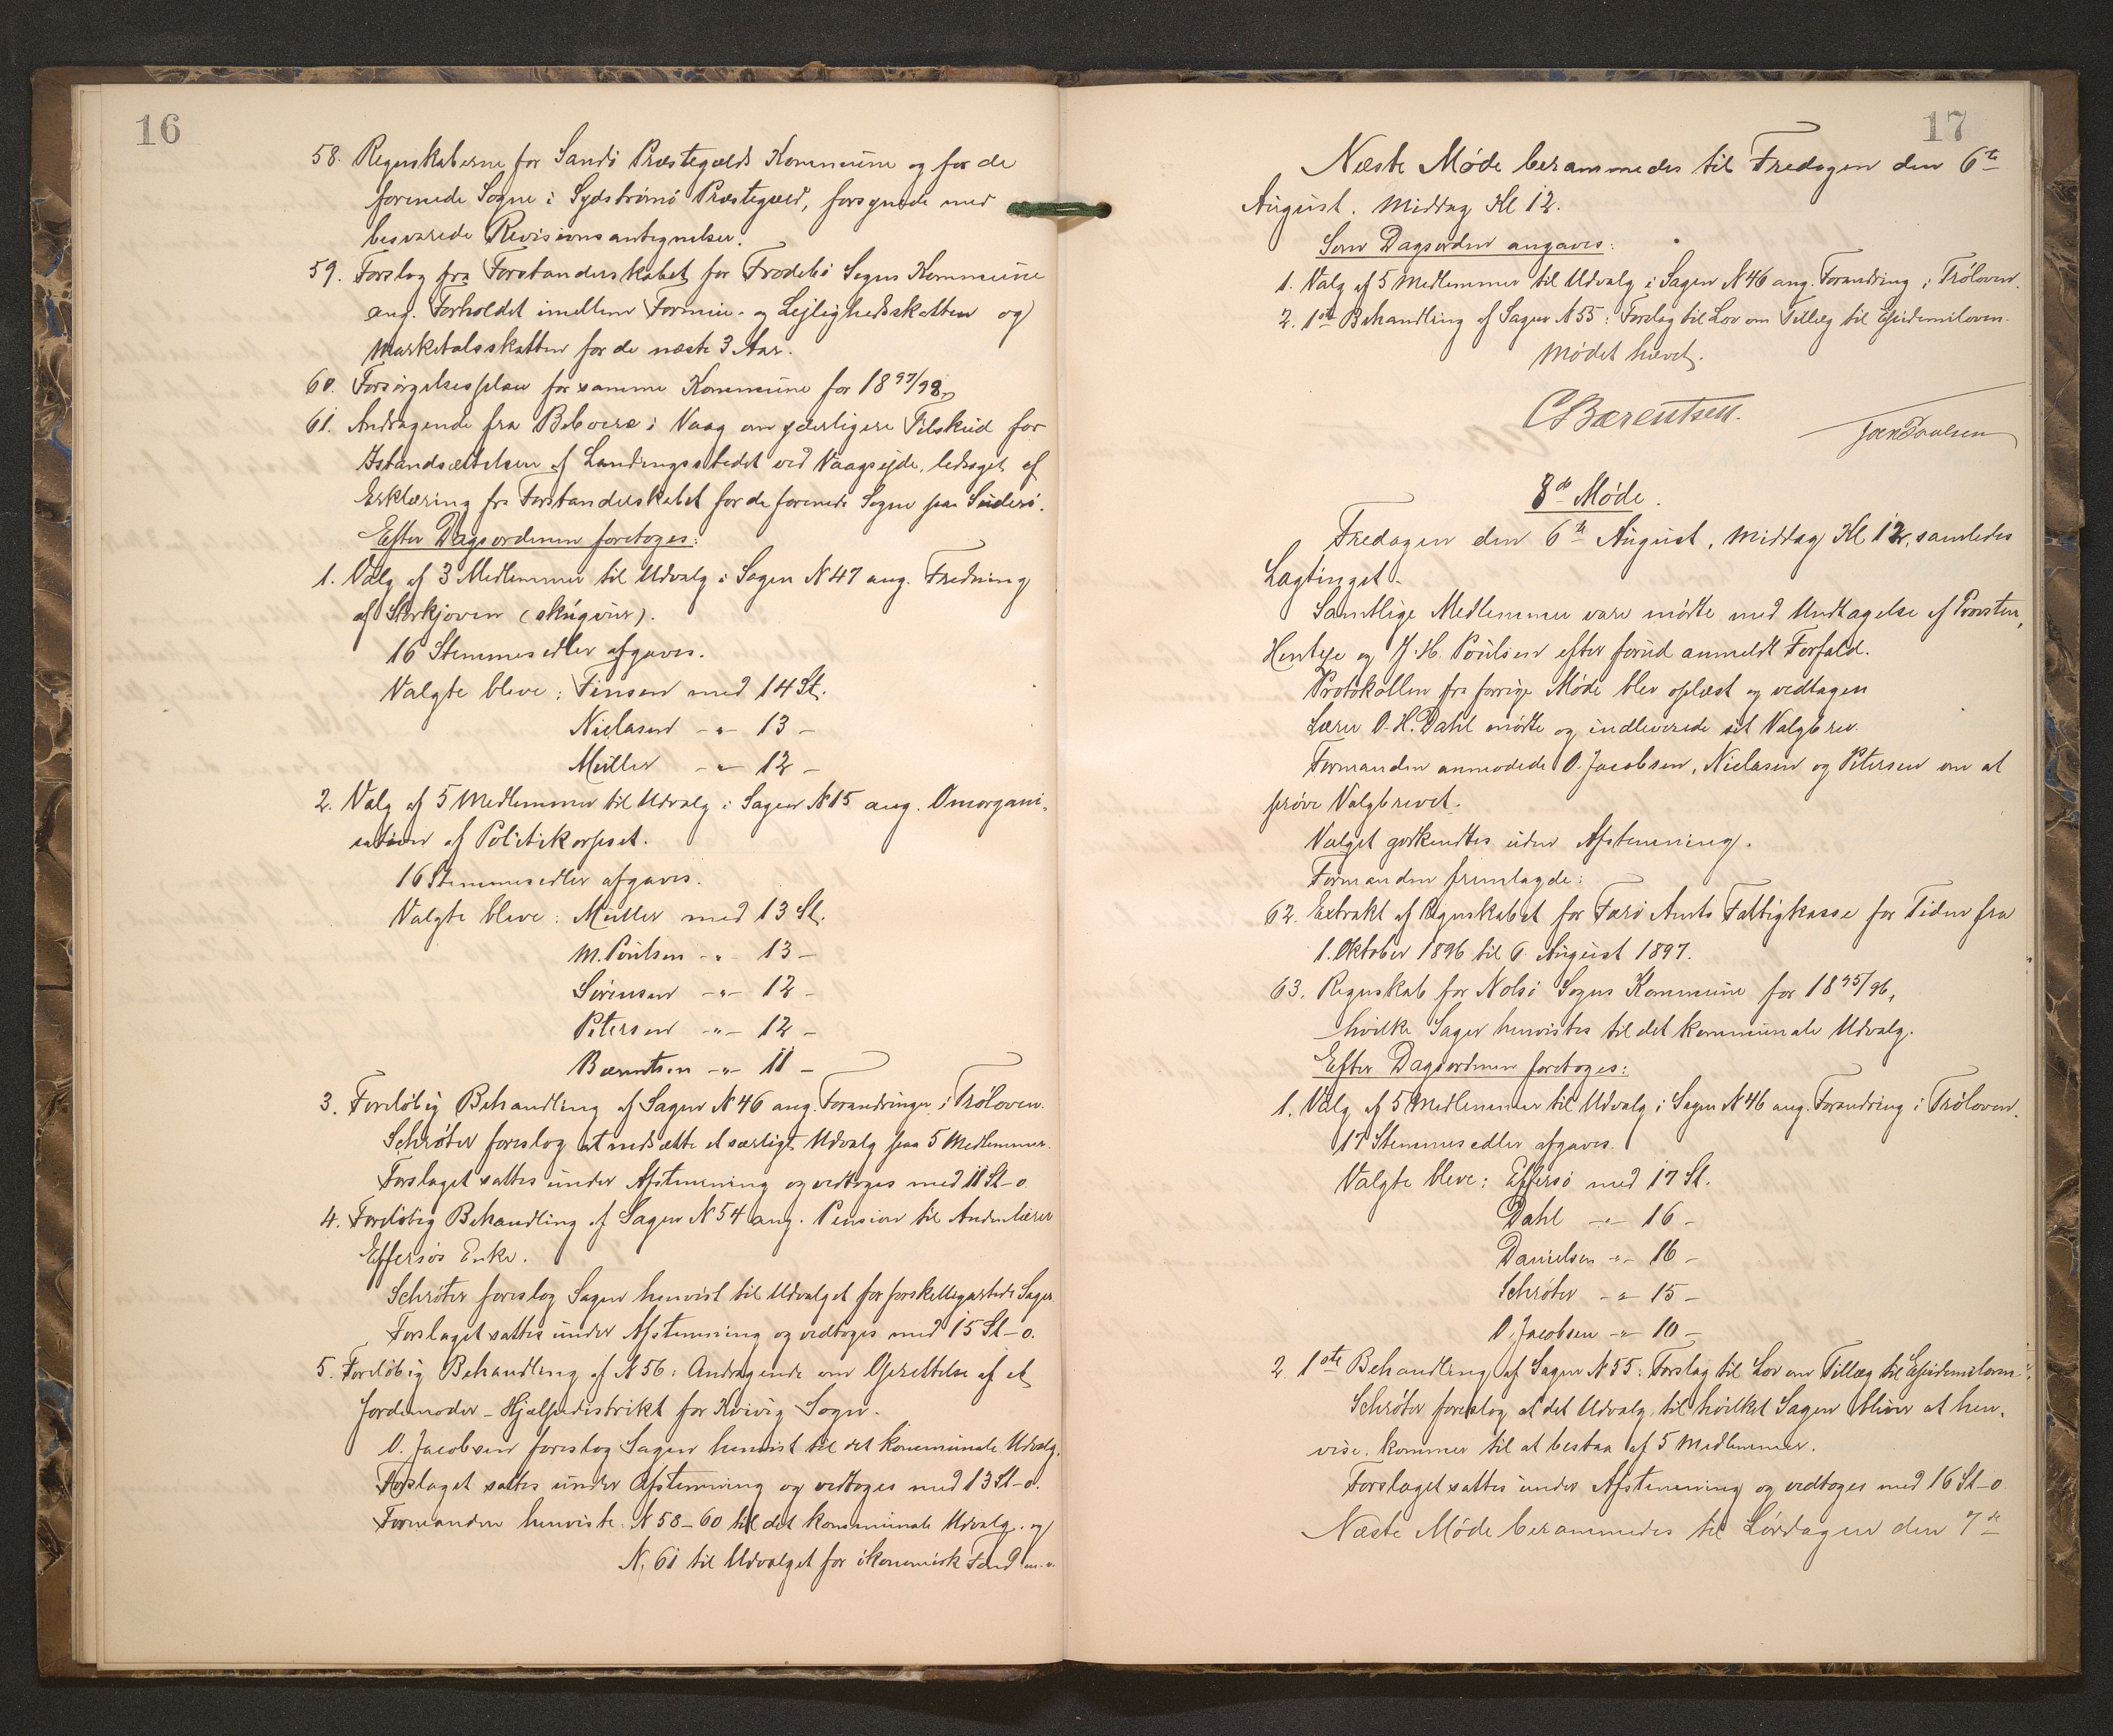 16
58. Regnskaberne for Sandø Præstegælds Kommune og for de
forenede Sogne i Sydstrømø Præstegæld, forsynede med
besvarede Revisionsantegnelser.
59. Forslag fra Forstanderskabet for Frodebø Sogns Kommune
ang. Forholdet imellem Formue- og Lejlighedsskatten og
Marketalsskatten for de næste 3 Aar.
60. Forsørgelsesplan for samme Kommune for 1897/98,
61. Andragende fra Beboere i Vaag om yderligere Tilskud for
Istandsættelsen af Landingsstedet ved Vaagsejde, ledsaget af
Erklæring fra Forstanderskabet for de forenede Sogne paa Suderø.
Efter Dagsordenen foretoges:
1. Valg af 3 Medlemmer til Udvalg i Sagen N 47 ang. Fredning
af Storkjoven (skúgvur).
16 Stemmesedler afgaves.
Valgte bleve: Finsen med 14 St.
Nielasen -"- 13 -
Müller -"- 12 -
2. Valg af 5 Medlemmer til Udvalg i Sagen N 15 ang. Omorgani-
sation af Politikorpset.
16 Stemmesedler afgaves.
Valgte bleve: Müller med 13 St.
M. Poulsen -"- 13 -
Sørensen -"- 12 -
Petersen -"- 12 -
Bærentsen -"- 11 -
3. Foreløbig Behandling af Sagen N 46 ang. Forandringer i Trøloven.
Schrøter foreslog at nedsætte et særligt Udvalg paa 5 Medlemmer.
Forslaget sattes under Afstemning og vedtoges med 11 St - 0
4. Foreløbig Behandling af Sagen N 54 ang. Pension til Andenlærer
Effersøs Enke.
Schrøter foreslog Sagen henvist til Udvalget for forskelligartede Sager.
Forslaget sattes under Afstemning og vedtoges med 15 St - 0.
5. Foreløbig Behandling af N 56: Andragende om Oprettelse af et
Jordemoder-Hjælpedistrikt for Kvivig Sogn.
O. Jacobsen foreslog Sagen henvist til det kommunale Udvalg.
Forslaget sattes under Afstemning og vedtoges med 13 St - 0.
Formanden henviste N 58-60 til det kommunale Udvalg. og
N. 61 til Udvalget for økonomisk Fond m.v.
17
Næste Møde berammedes til Fredagen den 6te
August. Middag Kl 12.
Som Dagsorden angaves:
1. Valg af 5 Medlemmer til Udvalg i Sagen N 46 ang. Forandring i Trøloven.
2. 1ste Behandling af Sagen N 55: Forslag til Lov om Tillæg til Epidemiloven.
Mødet hævet.
CBærentsen. Joen Poulsen
8de Møde.
Fredagen den 6te August, Middag Kl 12, samledes
Lagtinget.
Samtlige Medlemmer vare mødte med Undtagelse af Provsten,
Hentze og J. H. Poulsen efter forud anmeldt Forfald.
Protokollen fra forrige Møde blev oplæst og vedtagen
Lærer O. H. Dahl mødte og indleverede sit Valgbrev.
Formanden anmodede O. Jacobsen, Nielasen og Petersen om at
prøve Valgbrevet.
Valget godkendtes uden Afstemning.
Formanden fremlagde:
62. Extrakt af Regnskabet for Færø Amts Fattigkasse for Tiden fra
1. Oktober 1896 til 6. August 1897.
63. Regnskab for Nolsø Sogns Kommune for 1895/96,
hvilke Sager henvistes til det kommunale Udvalg.
Efter Dagsordenen foretoges:
1. Valg af 5 Medlemmer til Udvalg i Sagen N 46 ang. Forandring i Trøloven.
17 Stemmesedler afgaves.
Valgte bleve: Effersø med 17 St.
Dahl -"- 16 -
Danielsen -"- 16 -
Schrøter -"- 15 -
O. Jacobsen -"- 10 -
2. 1ste Behandling af Sagen N 55: Forslag til Lov om Tillæg til Epidemiloven.
Schrøter foreslog at det Udvalg, til hvilket Sagen bliver at hen-
vise. kommer til at bestaa af 5 Medlemmer.
Forslaget sattes under Afstemning og vedtoges med 16 St - 0
Næste Møde berammedes til Lørdagen den 7de